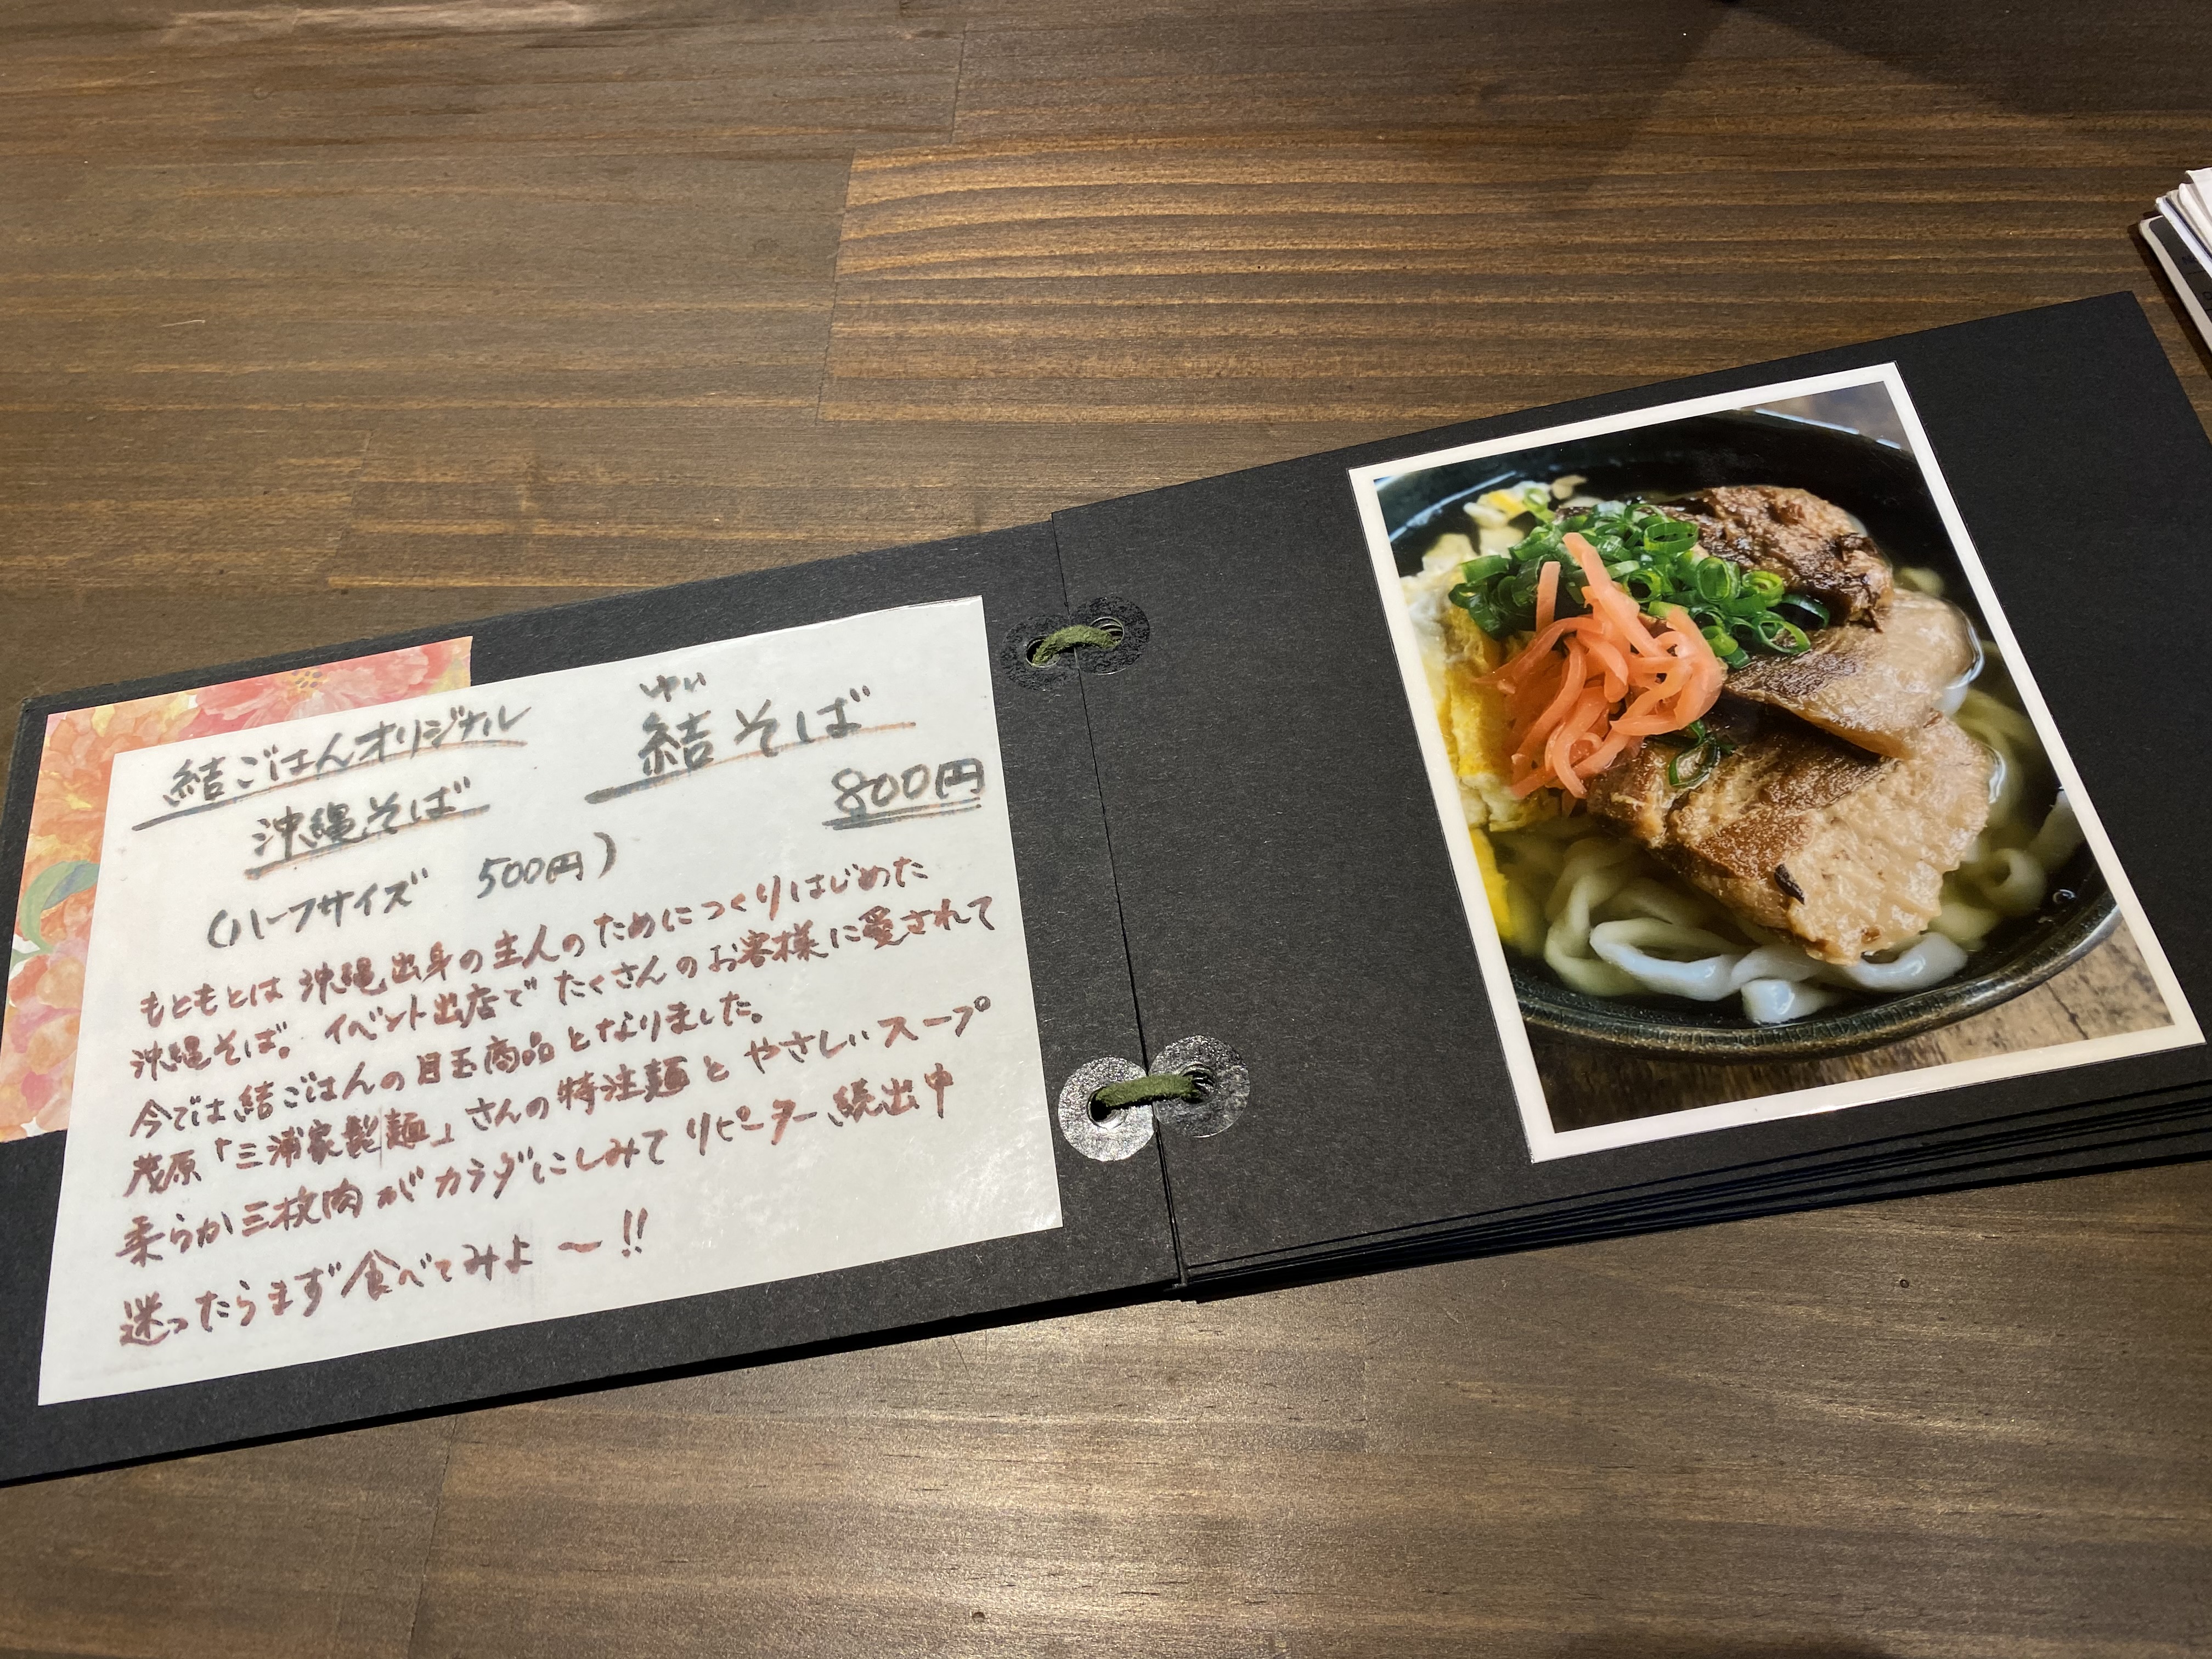 結ごはんオリジナル
沖縄そば
ゆい
結そば
800円
(ハーフサイズ 500円)
もともとは沖縄出身の主人のためにつくりはじめた
沖縄そば。イベント出店でたくさんのお客様に愛されて
今では結ごはんの目玉商品となりました。
茂原「三浦家製麺」さんの特注麺とやさしいスープ
柔らか三枚肉がカラダにしみてリピーター続出中
迷ったらまず食べてみよ〜!!